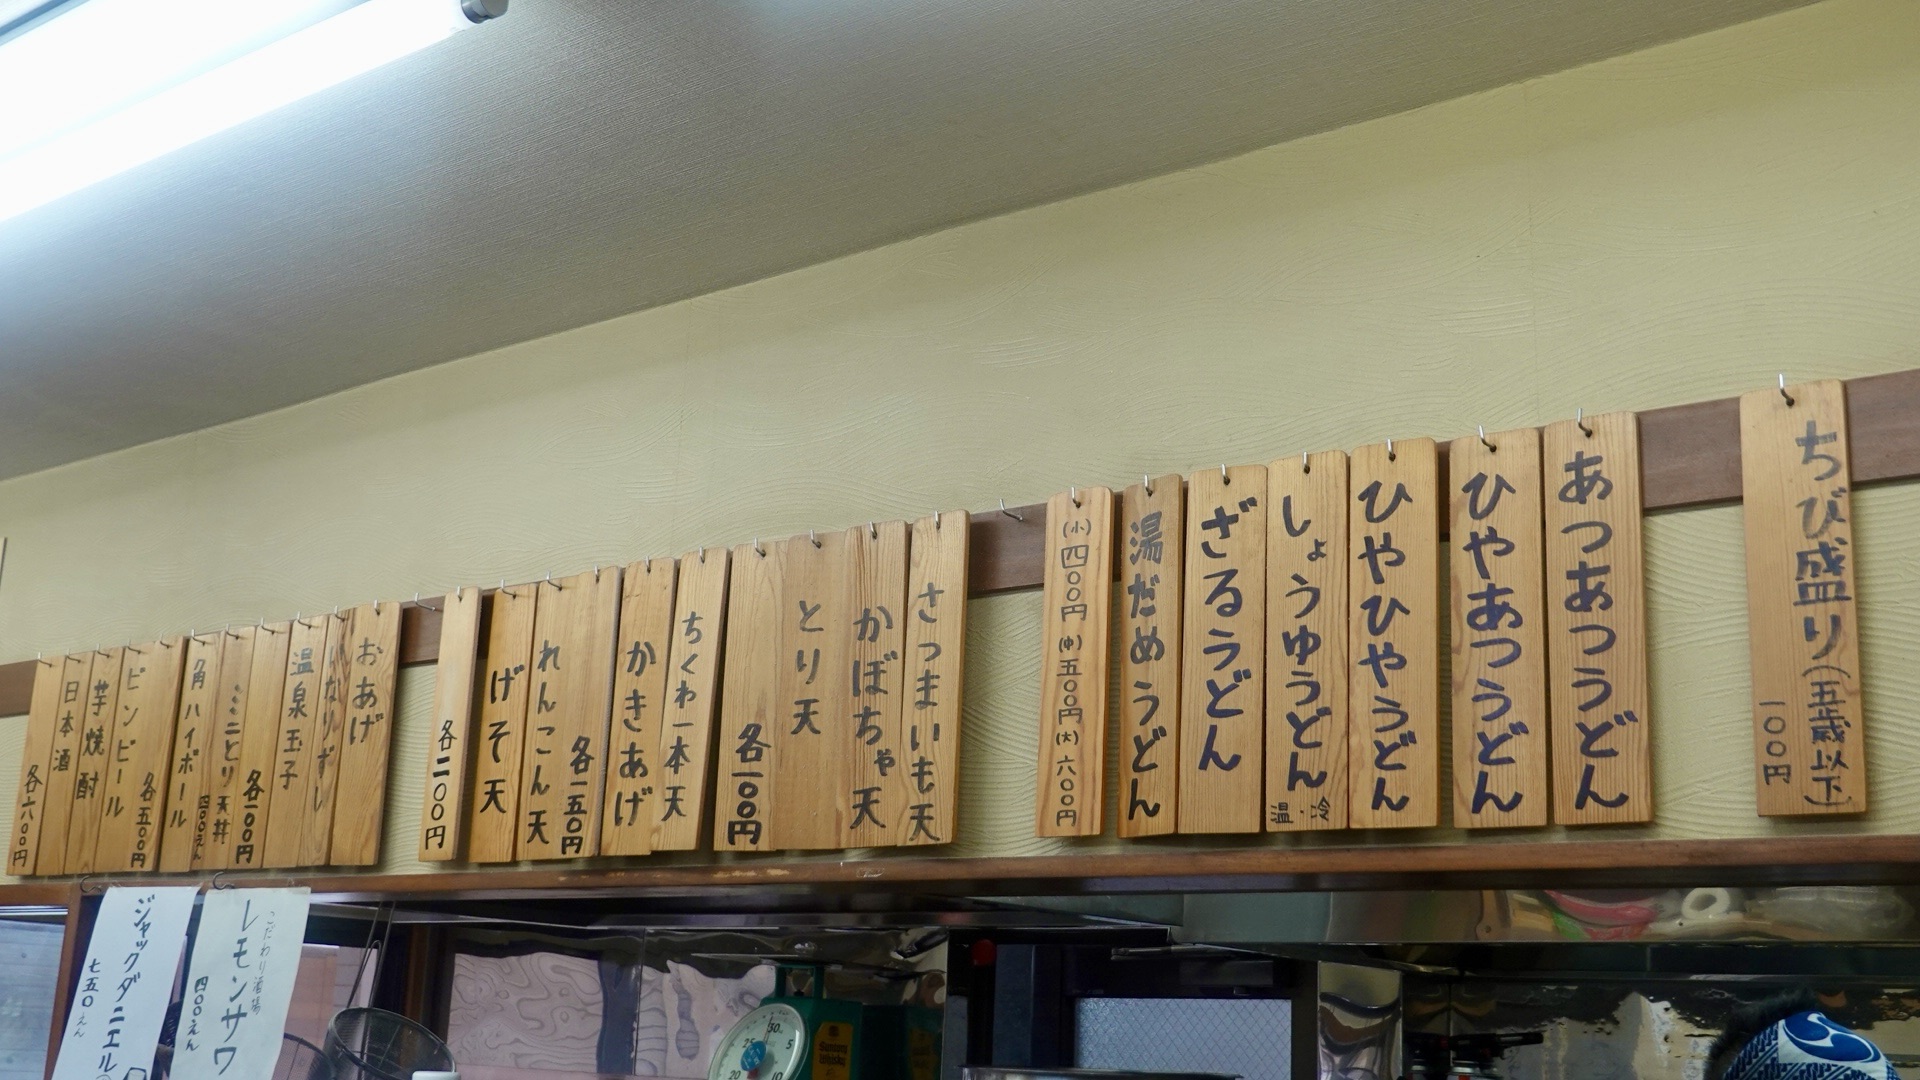 ちび盛り(五歳以下)
一〇〇円
あつあつうどん
ひやあつうどん
ひやひやうどん
しょうゆうどん
温・冷
ざるうどん
湯だめうどん
(小)四〇〇円(中)五〇〇円(大)六〇〇円
さつまいも天
かぼちゃ天
とり天
各一〇〇円
ちくわ一本天
かきあげ
各一五〇円
れんこん天
げそ天
各二〇〇円
おあげ
いなりずし
温泉玉子
各一〇〇円
ミニとり天丼
四〇〇えん
角ハイボール
各五〇〇円
ビンビール
芋焼酎
日本酒
各六〇〇円
こだわり酒場
レモンサワ
四〇〇えん
ジャックダニエル
七五〇えん